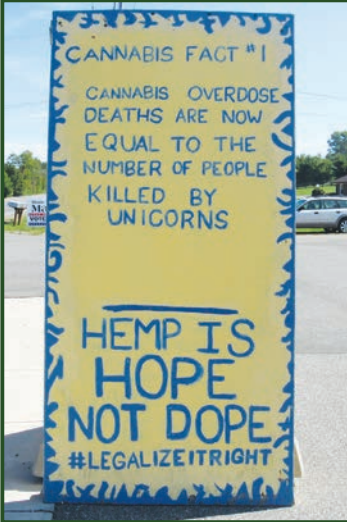 CANNABIS FACT #1
CANNABIS OVERDOSE
DEATHS ARE NOW
EQUAL TO THE
NUMBER OF PEOPLE
KILLED BY
UNICORNS
HEMP IS
HOPE
NOT DOPE
#LEGALIZEITRIGHT